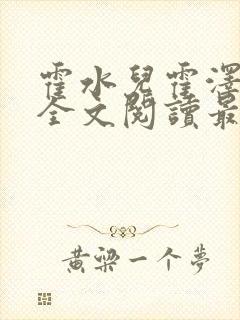 霍水兒霍澤
全文閱讀最
黃梁一个夢